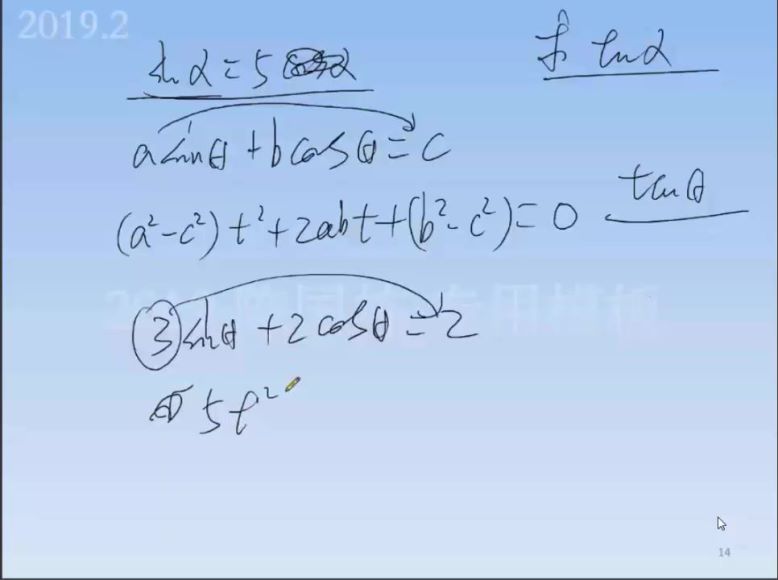 2019.2
sin α = 5
求 tan α
a sin θ + b cos θ = c
tan θ
(a² - c²) t² + 2abt + (b² - c²) = 0
3 sin θ + 2 cos θ = 2
5t²
14